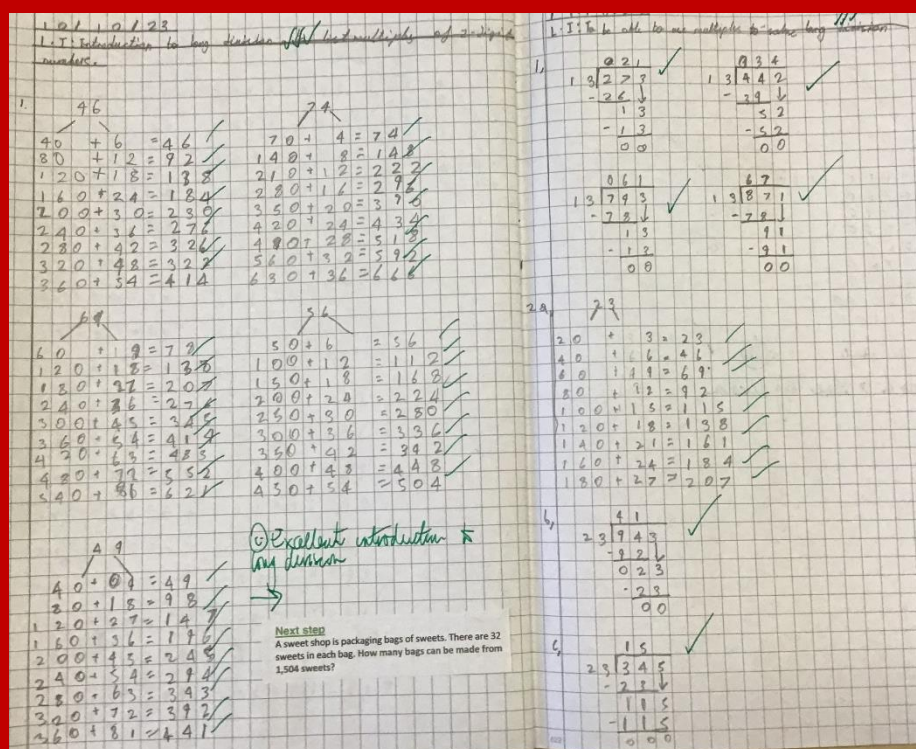 10/10/23
L.I: Introduction to long division list multiples of 2-digit
numbers.
1.
46
40 + 6 = 46
80 + 12 = 92
120 + 18 = 138
160 + 24 = 184
200 + 30 = 230
240 + 36 = 276
280 + 42 = 326
320 + 48 = 322
360 + 54 = 414
74
70 + 4 = 74
140 + 8 = 148
210 + 12 = 222
280 + 16 = 296
350 + 20 = 370
420 + 24 = 434
490 + 28 = 518
560 + 32 = 592
630 + 36 = 666
69
60 + = 78
120 + 18 = 138
180 + 27 = 207
240 + 36 = 276
300 + 45 = 345
360 + 54 = 414
420 + 63 = 483
480 + 72 = 552
540 + 86 = 621
56
50 + 6 = 56
100 + 12 = 112
150 + 18 = 168
200 + 24 = 224
250 + 30 = 280
300 + 36 = 336
350 + 42 = 392
400 + 48 = 448
450 + 54 = 504
49
40 + 09 = 49
80 + 18 = 98
120 + 27 = 147
160 + 36 = 196
200 + 45 = 245
240 + 54 = 294
280 + 63 = 343
320 + 72 = 392
360 + 81 = 441
Excellent introduction to
long division
Next step
A sweet shop is packaging bags of sweets. There are 32
sweets in each bag. How many bags can be made from
1,504 sweets?
L.I: To be able to use multiples to solve long division
1,
021
13 273
- 26
13
- 13
00
034
13 442
- 39
52
- 52
00
061
13 793
- 78
13
- 13
00
67
13 871
- 78
91
- 91
00
2a,
23
20 + 3 = 23
40 + 6 = 46
60 + 9 = 69
80 + 12 = 92
100 + 15 = 115
120 + 18 = 138
140 + 21 = 161
160 + 24 = 184
180 + 27 = 207
b,
41
23 943
- 92
023
- 23
00
c,
15
23 345
- 23
115
- 115
000